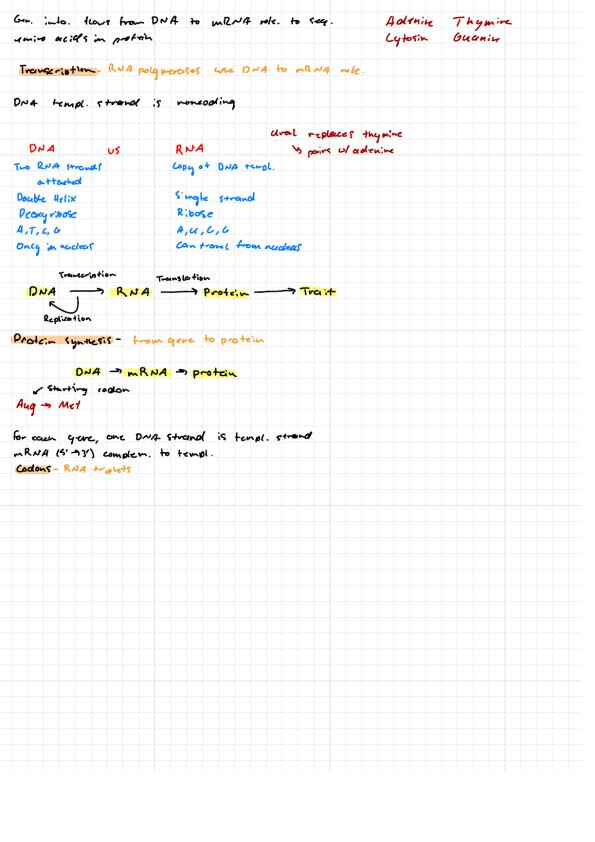 Gen. info. flows from DNA to mRNA mole. to seq.
amino acids in protein
Adenine Thymine
Cytosin Guanin
Transcription - RNA polymerases use DNA to mRNA mole.
DNA templ. strand is noncoding
Uracil replaces thymine
↳ pairs w/ adenine
DNA vs RNA
Two RNA strands attached
Copy of DNA templ.
Double Helix
Single strand
Deoxyribose
Ribose
A, T, C, G
A, U, C, G
Only in nucleus
Can travel from nucleus
Transcription Translation
DNA → RNA → Protein → Trait
Replication
Protein Synthesis - from gene to protein
DNA → mRNA → protein
↙ Starting codon
Aug → Met
For each gene, one DNA strand is templ. strand
mRNA (5' → 3') complem. to templ.
Codons - RNA triplets